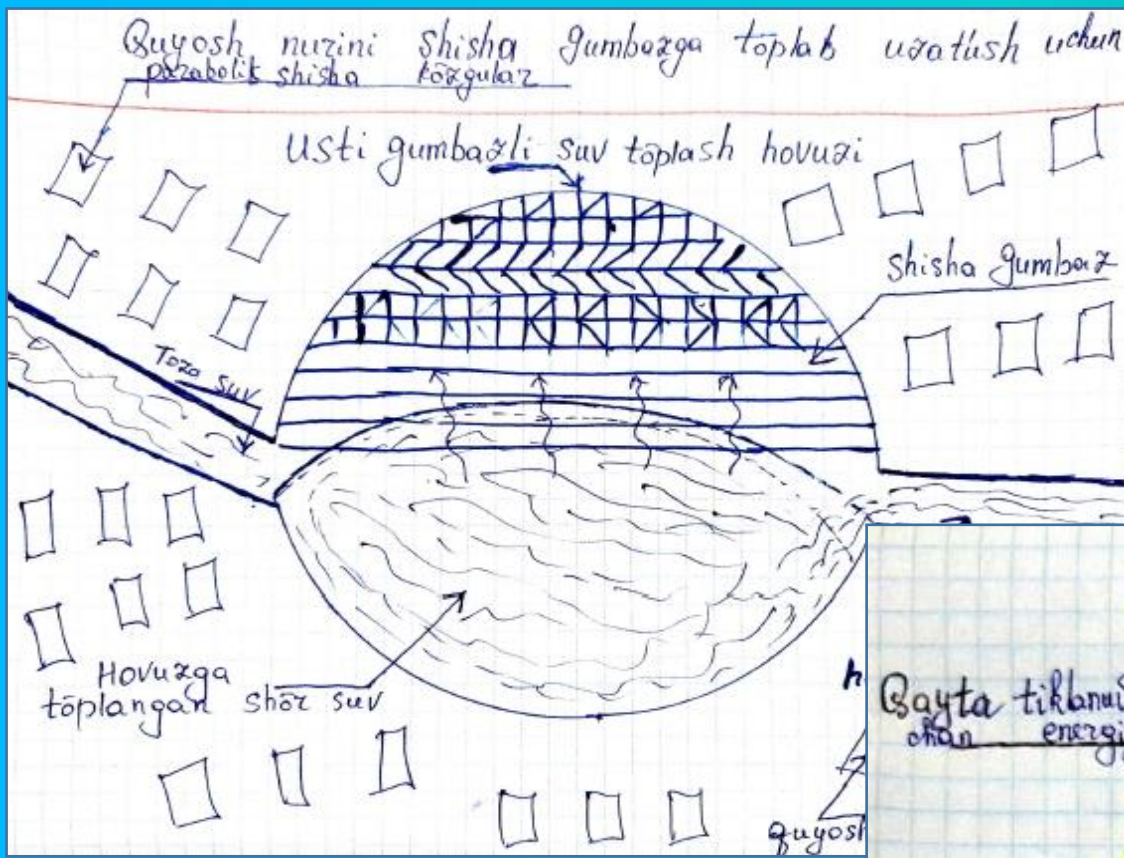 Quyosh nurini shisha gumbazga tōplab uzatish uchun
parabolik shisha kōzgular
Usti gumbazli suv tōplash hovuzi
shisha gumbaz
Toza suv
Hovuzga
tōplangan shōr suv
h
quyosh
Qayta tiklanui
chan energi